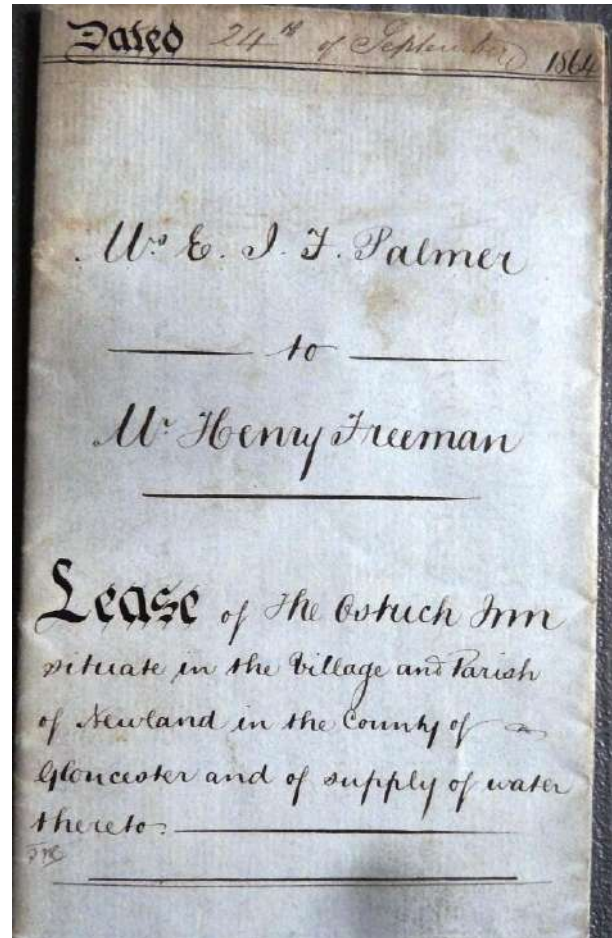 Dated 24th of September 1864
Mrs E. J. F. Palmer
to
Mr Henry Freeman
Lease of The Ostrich Inn
situate in the Village and Parish
of Newland in the County of
Gloucester and of supply of water
thereto